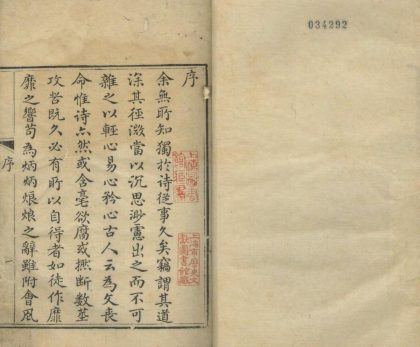 034292
序
余無所知獨於诗從事久矣竊謂其道
深其徑微當以沉思渺慮出之而不可
雜之以輕心易心矜心古人云為文喪
命惟诗亦然或含毫欲腐或撚断数莖
攻苦既久必有所以自得者如徒作靡
靡之響苟為炳炳烺烺之辭雖附會風
序